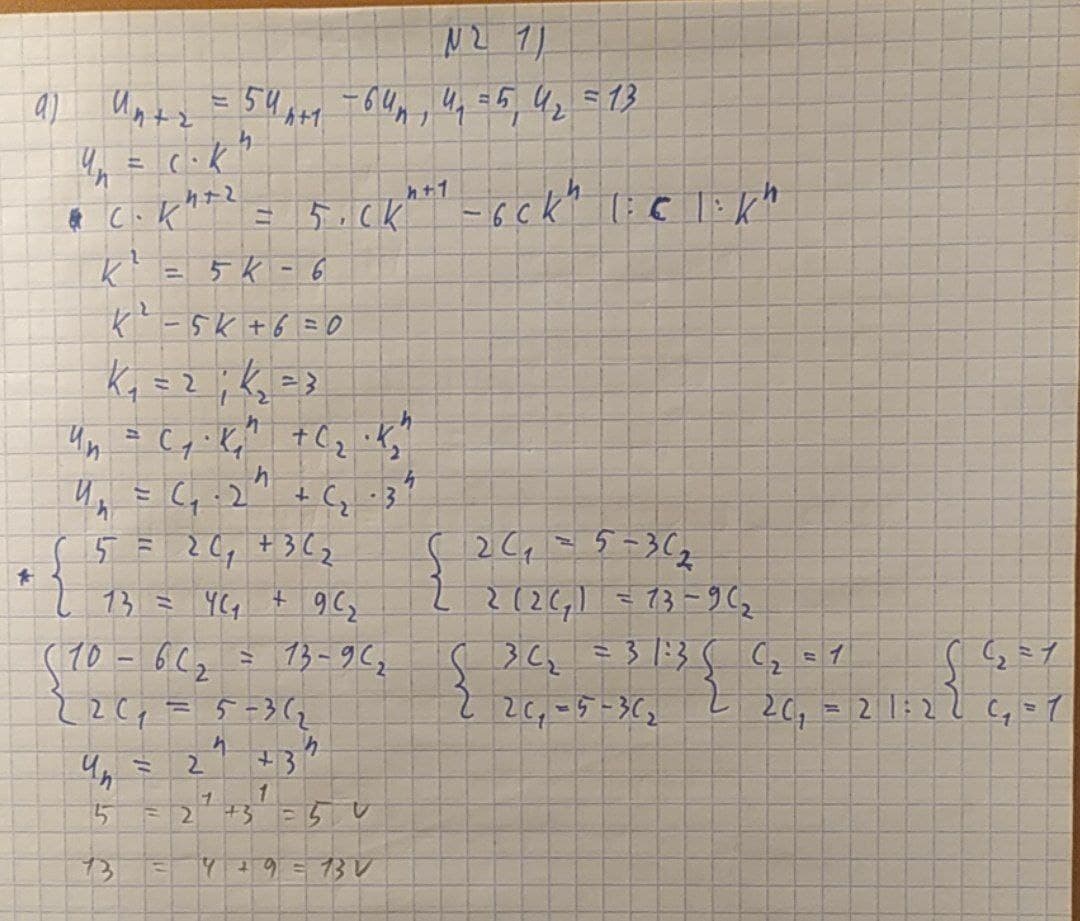 N2 1)
a) u_{n+2} = 5u_{n+1} - 6u_n, u_1 = 5, u_2 = 13
u_n = c · k^n
c · k^{n+2} = 5 · ck^{n+1} - 6ck^n |: c |: k^n
k^2 = 5k - 6
k^2 - 5k + 6 = 0
k_1 = 2 ; k_2 = 3
u_n = c_1 · k_1^n + c_2 · k_2^n
u_n = c_1 · 2^n + c_2 · 3^n
* { 5 = 2c_1 + 3c_2 { 2c_1 = 5 - 3c_2
13 = 4c_1 + 9c_2 2(2c_1) = 13 - 9c_2
{ 10 - 6c_2 = 13 - 9c_2 { 3c_2 = 3 |:3 { c_2 = 1 { c_2 = 1
2c_1 = 5 - 3c_2 2c_1 = 5 - 3c_2 2c_1 = 2 |: 2 c_1 = 1
u_n = 2^n + 3^n
5 = 2^1 + 3^1 = 5 v
13 = 4 + 9 = 13 v